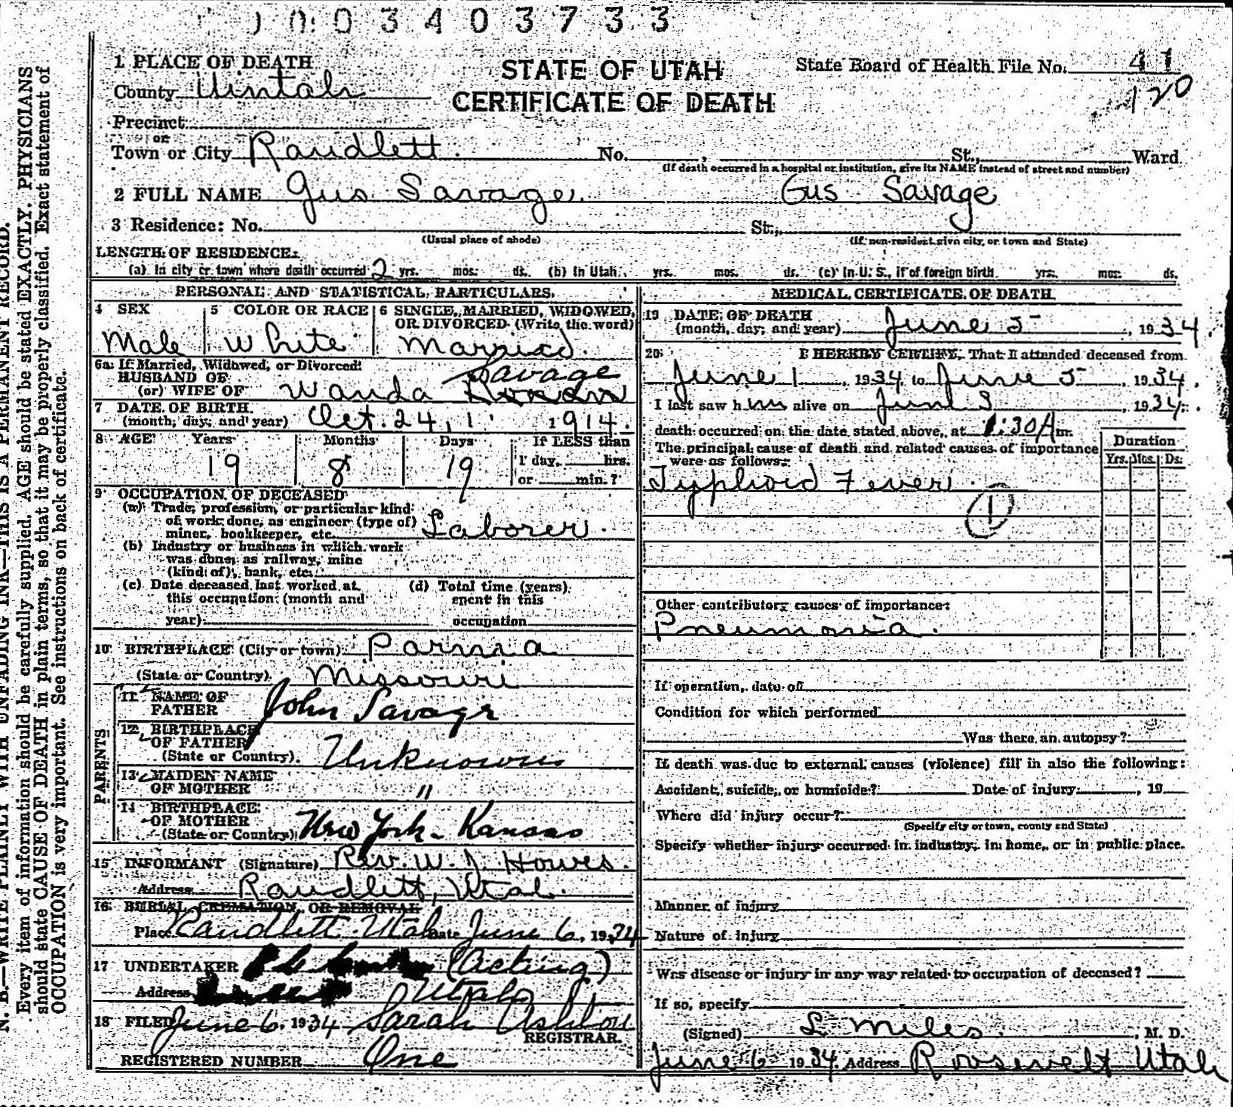 1003403733
STATE OF UTAH
CERTIFICATE OF DEATH
State Board of Health File No. 41
120
1 PLACE OF DEATH
County Uintah
Precinct
or
Town or City Randlett. No. , St., Ward
(If death occurred in a hospital or institution, give its NAME instead of street and number)
2 FULL NAME Gus Savage. Gus Savage
3 Residence: No. St.,
(Usual place of abode) (If non-resident give city, or town and State)
LENGTH OF RESIDENCE:
(a) In city or town where death occurred 2 yrs. mos. ds. (b) In Utah. yrs. mos. ds. (c) In U. S., if of foreign birth yrs. mos. ds.
PERSONAL AND STATISTICAL PARTICULARS.
4 SEX
Male
5 COLOR OR RACE
White
6 SINGLE, MARRIED, WIDOWED,
OR DIVORCED (Write the word)
Married.
6a If Married, Widowed, or Divorced
HUSBAND OF
(or) WIFE OF Wanda Savage
7 DATE OF BIRTH
(month, day, and year) Oct. 24, 1914.
8 AGE Years Months Days If LESS than
19 8 19 1 day, hrs.
or min.?
9 OCCUPATION OF DECEASED
(a) Trade, profession, or particular kind
of work done, as engineer (type of)
miner, bookkeeper, etc. Laborer.
(b) Industry or business in which work
was done, as railway, mine
(kind of), bank, etc.
(c) Date deceased last worked at
this occupation (month and
year)
(d) Total time (years)
spent in this
occupation
10 BIRTHPLACE (City or town) Parma
(State or Country) Missouri
PARENTS
11 NAME OF
FATHER John Savage
12 BIRTHPLACE
OF FATHER
(State or Country). Unknown
13 MAIDEN NAME
OF MOTHER "
14 BIRTHPLACE
OF MOTHER
(State or Country) New York - Kansas
15 INFORMANT (Signature) Rev. W. J. Howes.
Address Randlett, Utah.
16 BURIAL, CREMATION, OR REMOVAL
Place Randlett Utah Date June 6, 1934
17 UNDERTAKER (Acting)
Address Utah
18 FILED June 6, 1934 Sarah Ashton
REGISTRAR.
REGISTERED NUMBER One
MEDICAL CERTIFICATE OF DEATH
19 DATE OF DEATH
(month, day, and year) June 5, 1934
20 I HEREBY CERTIFY, That I attended deceased from
June 1, 1934 to June 5, 1934.
I last saw him alive on June 3, 1934.
death occurred on the date stated above, at 1:30 A m.
The principal cause of death and related causes of importance
were as follows:
Duration
Yrs. Mos. Ds.
Typhoid Fever.
1
Other contributory causes of importance:
Pneumonia.
If operation, date of
Condition for which performed
Was there an autopsy?
If death was due to external causes (violence) fill in also the following:
Accident, suicide, or homicide? Date of injury , 19
Where did injury occur?
(Specify city or town, county and State)
Specify whether injury occurred in industry, in home, or in public place.
Manner of injury
Nature of injury
Was disease or injury in any way related to occupation of deceased?
If so, specify
(Signed) L. Miles. , M. D.
June 6 1934. Address Roosevelt Utah
N. B.—WRITE PLAINLY WITH UNFADING INK—THIS IS A PERMANENT RECORD.
Every item of information should be carefully supplied. AGE should be stated EXACTLY. PHYSICIANS
should state CAUSE OF DEATH in plain terms, so that it may be properly classified. Exact statement of
OCCUPATION is very important. See instructions on back of certificate.